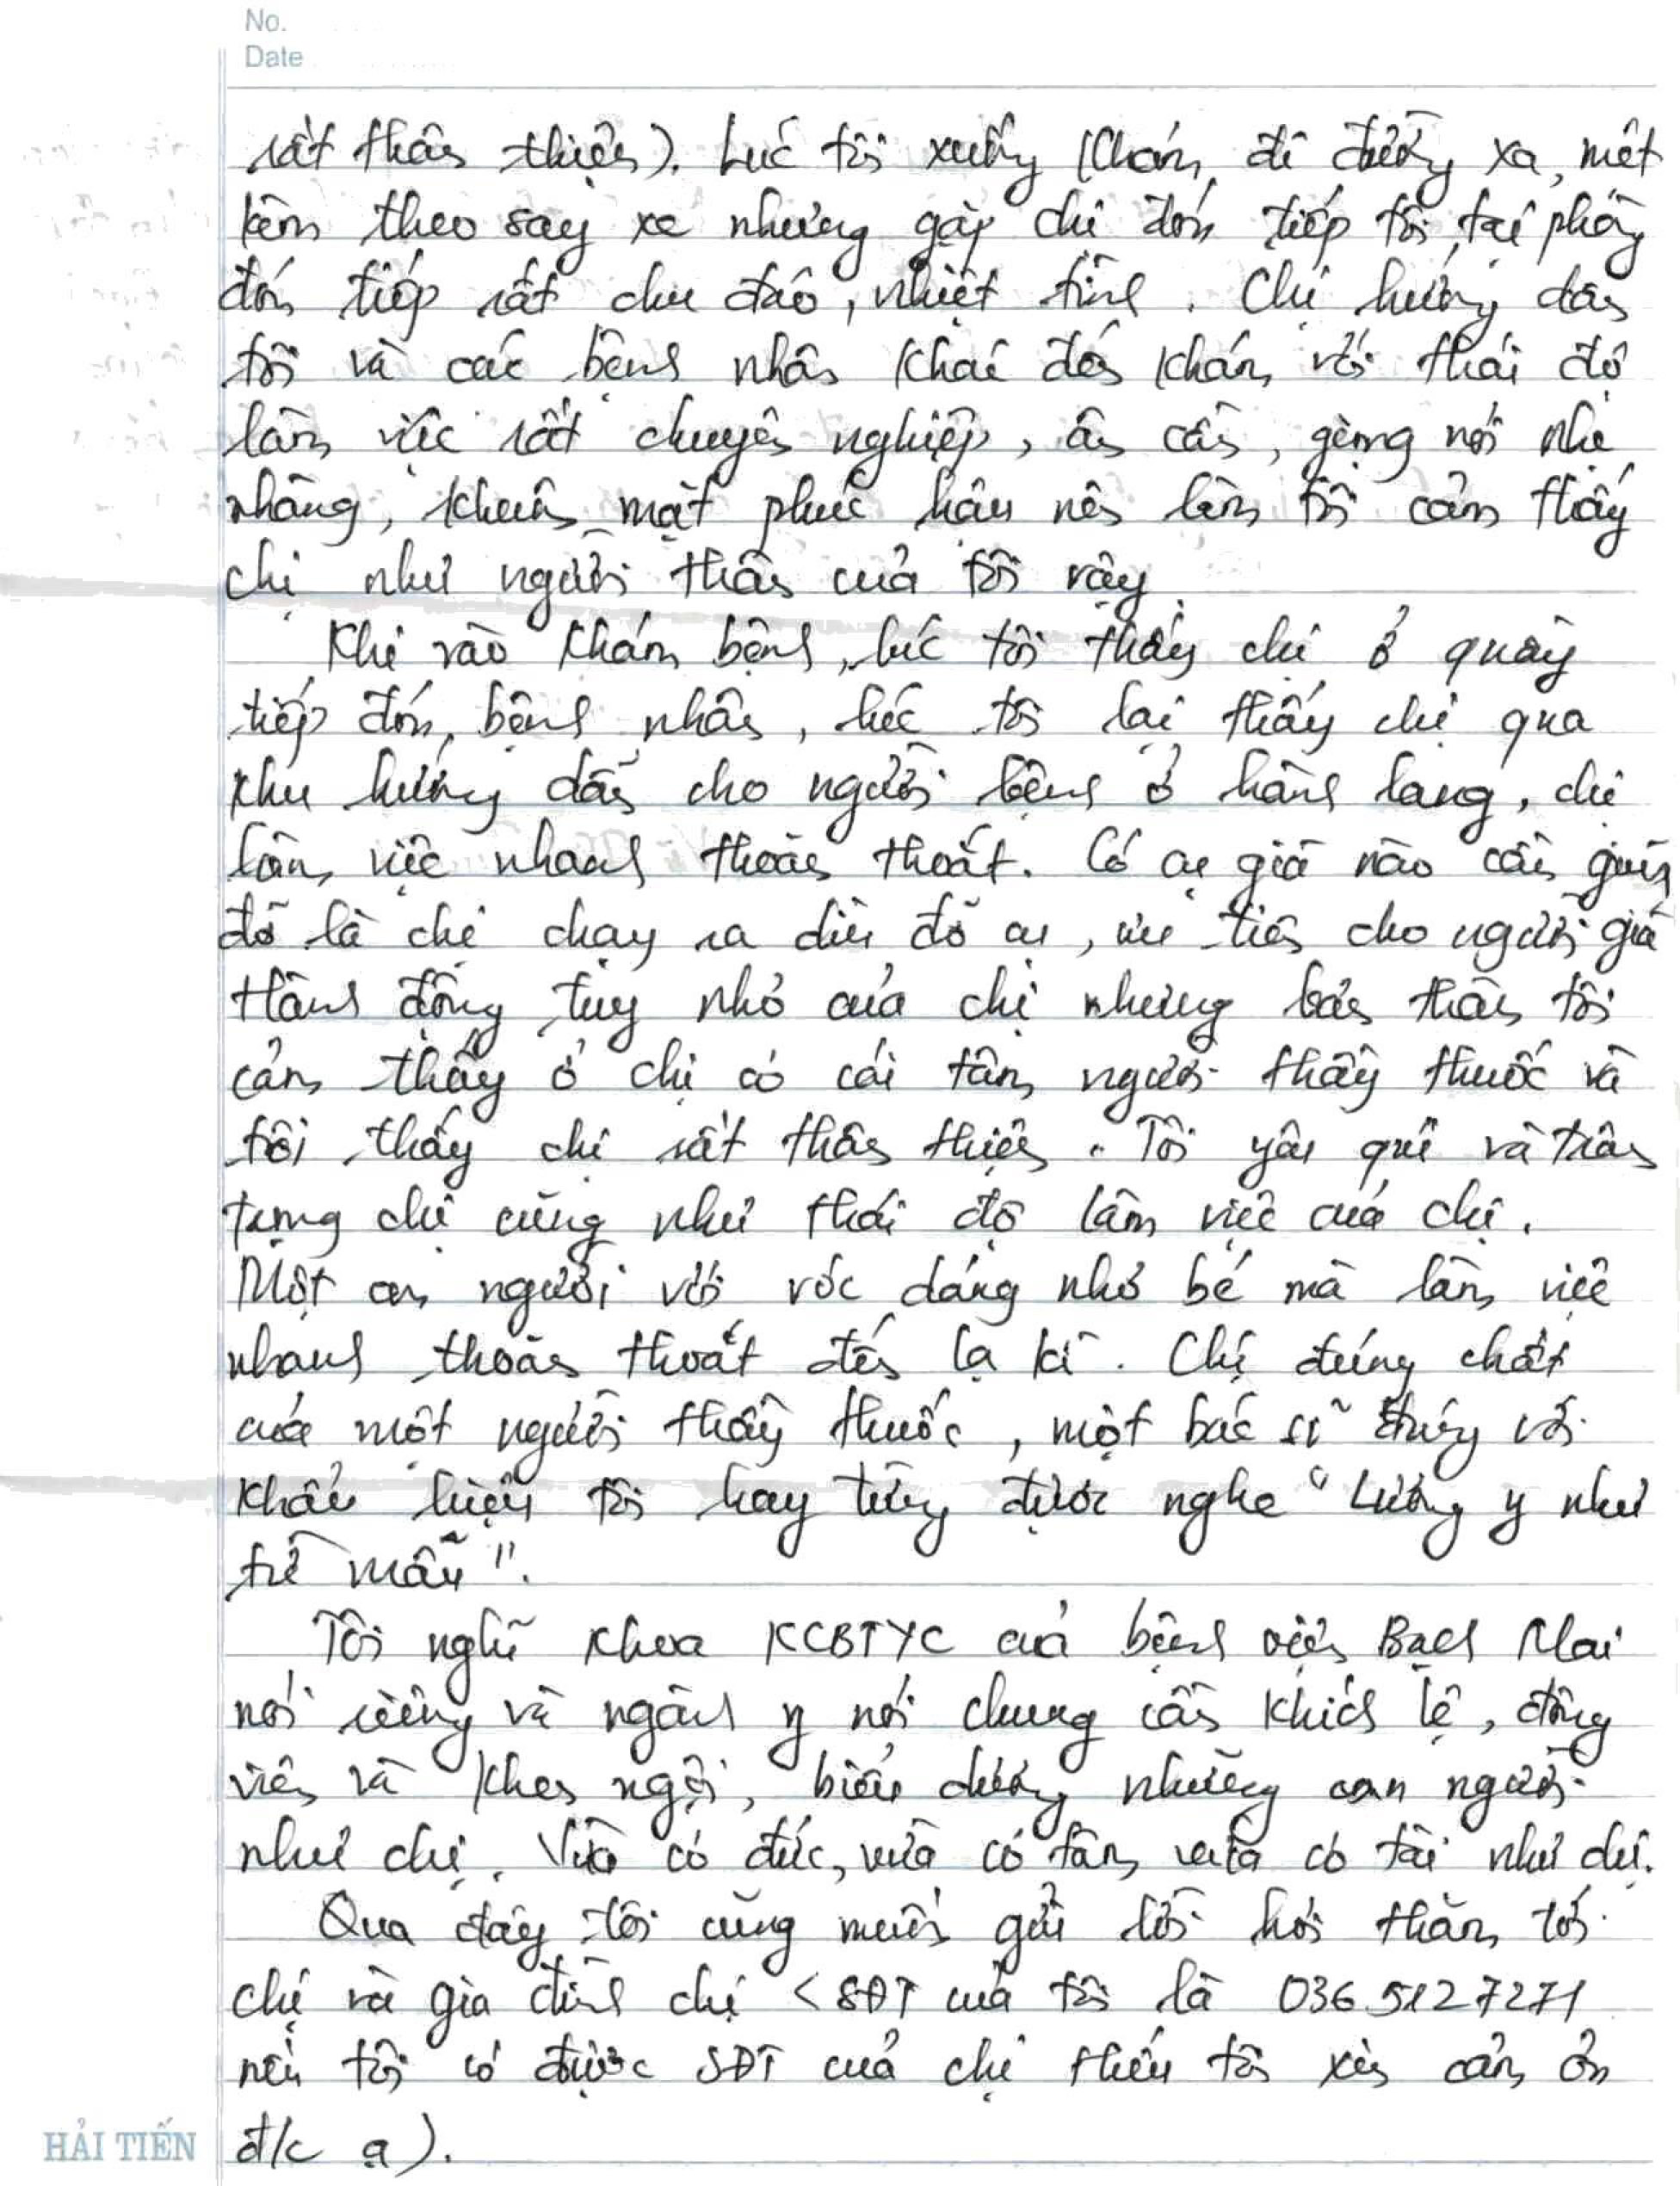 No.
Date
rất thân thiện). Lúc tôi xuống khám, đi đường xa, mệt
kèm theo say xe nhưng gặp chị đón tiếp tôi tại phòng
đón tiếp rất chu đáo, nhiệt tình. Chị hướng dẫn
tôi và các bệnh nhân khác đến khám với thái độ
làm việc rất chuyên nghiệp, ân cần, giọng nói nhẹ
nhàng, khuôn mặt phúc hậu nên làm tôi cảm thấy
chị như người thân của tôi vậy.
Khi vào khám bệnh, lúc tôi thấy chị ở quầy
tiếp đón bệnh nhân, lúc tôi lại thấy chị qua
khu hướng dẫn cho người bệnh ở hành lang, chị
làm việc nhanh thoăn thoắt. Có cụ già nào cần giúp
đỡ là chị chạy ra dìu đỡ cụ, ưu tiên cho người già
Hành động tuy nhỏ của chị nhưng bản thân tôi
cảm thấy ở chị có cái tâm người thầy thuốc và
tôi thấy chị rất thân thiện. Tôi yêu quí và trân
trọng chị cũng như thái độ làm việc của chị.
Một con người với vóc dáng nhỏ bé mà làm việc
nhanh thoăn thoắt đến lạ kì. Chị đúng chất
của một người thầy thuốc, một bác sĩ đúng với
khẩu hiệu tôi hay từng được nghe "Lương y như
từ mẫu".
Tôi nghĩ khoa KCBTYC của bệnh viện Bạch Mai
nói riêng và ngành y nói chung cần khích lệ, động
viên và khen ngợi, biểu dương những con người
như chị. Vừa có đức, vừa có tâm, vừa có tài như chị.
Qua đây tôi cũng muốn gửi lời hỏi thăm tới
chị và gia đình chị (SĐT của tôi là 0365127271
nếu tôi có được SĐT của chị thiếu tôi xin cảm ơn
đ/c ạ).
HẢI TIẾN